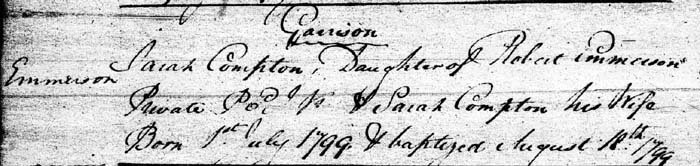 Garrison
Emmerson Sarah Compton, Daughter of Robert Emmerson
Private & Sarah Compton his Wife
Born 1st July 1799 & baptized August 18th 1799